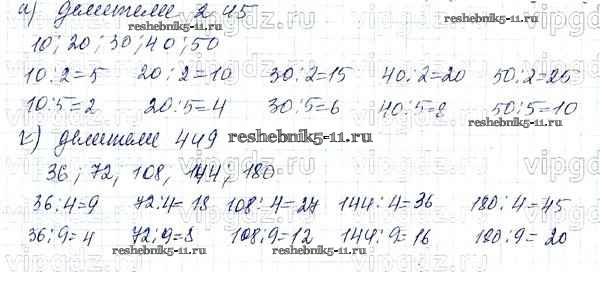 а) делители 2 и 5
10; 20; 30; 40; 50
10:2=5 20:2=10 30:2=15 40:2=20 50:2=25
10:5=2 20:5=4 30:5=6 40:5=8 50:5=10
г) делители 4 и 9
36; 72, 108, 144, 180
36:4=9 72:4=18 108:4=27 144:4=36 180:4=45
36:9=4 72:9=8 108:9=12 144:9=16 180:9=20
reshebnik5-11.ru
reshebnik5-11.ru
reshebnik5-11.ru
reshebnik5-11.ru
reshebnik5-11.ru
vipgdz